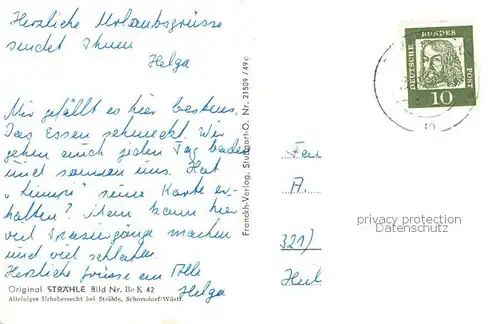 Herzliche Urlaubsgrüsse
sendet Ihnen
Helga
Mir gefällt es hier bestens.
Das Essen schmeckt. Wir
gehen auch jeden Tag baden
und sonnen uns. Hat
" seine Karte er-
halten? Man kann hier
viel Spaziergänge machen
und viel schlafen.
Herzliche Grüsse an Alle
Helga
Original STRÄHLE Bild Nr. Be K 42
Alleiniges Urheberrecht bei Strähle, Schorndorf/Württ.
Franckh-Verlag, Stuttgart-O. Nr. 21509/49c
DEUTSCHE BUNDES POST
10
A.
321)
privacy protection
Datenschutz